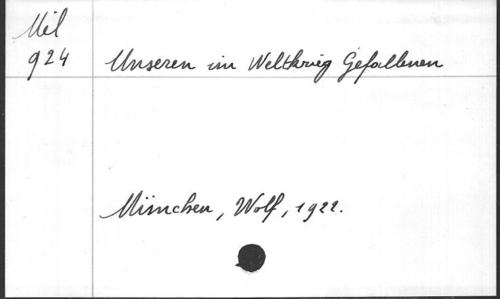 Mil
924
Unseren im Weltkrieg Gefallenen
München, Wolf, 1922.